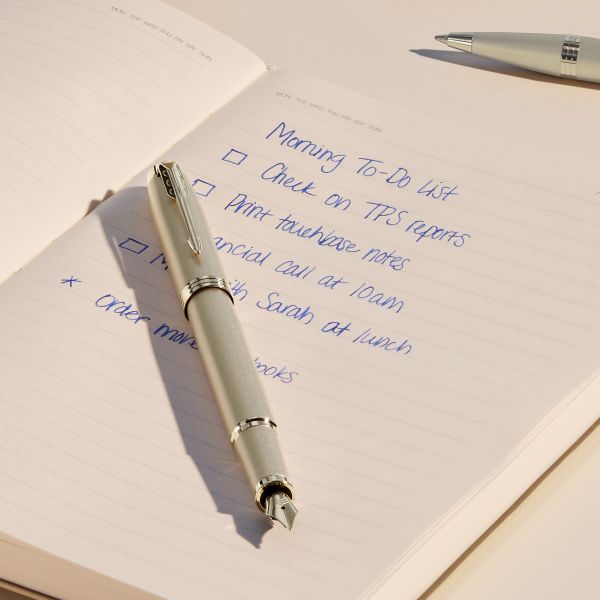 MON TUE WED THU FRI SAT SUN
MON TUE WED THU FRI SAT SUN
Morning To-Do List
Check on TPS reports
Print touchbase notes
call at 10am
Sarah at lunch
* order